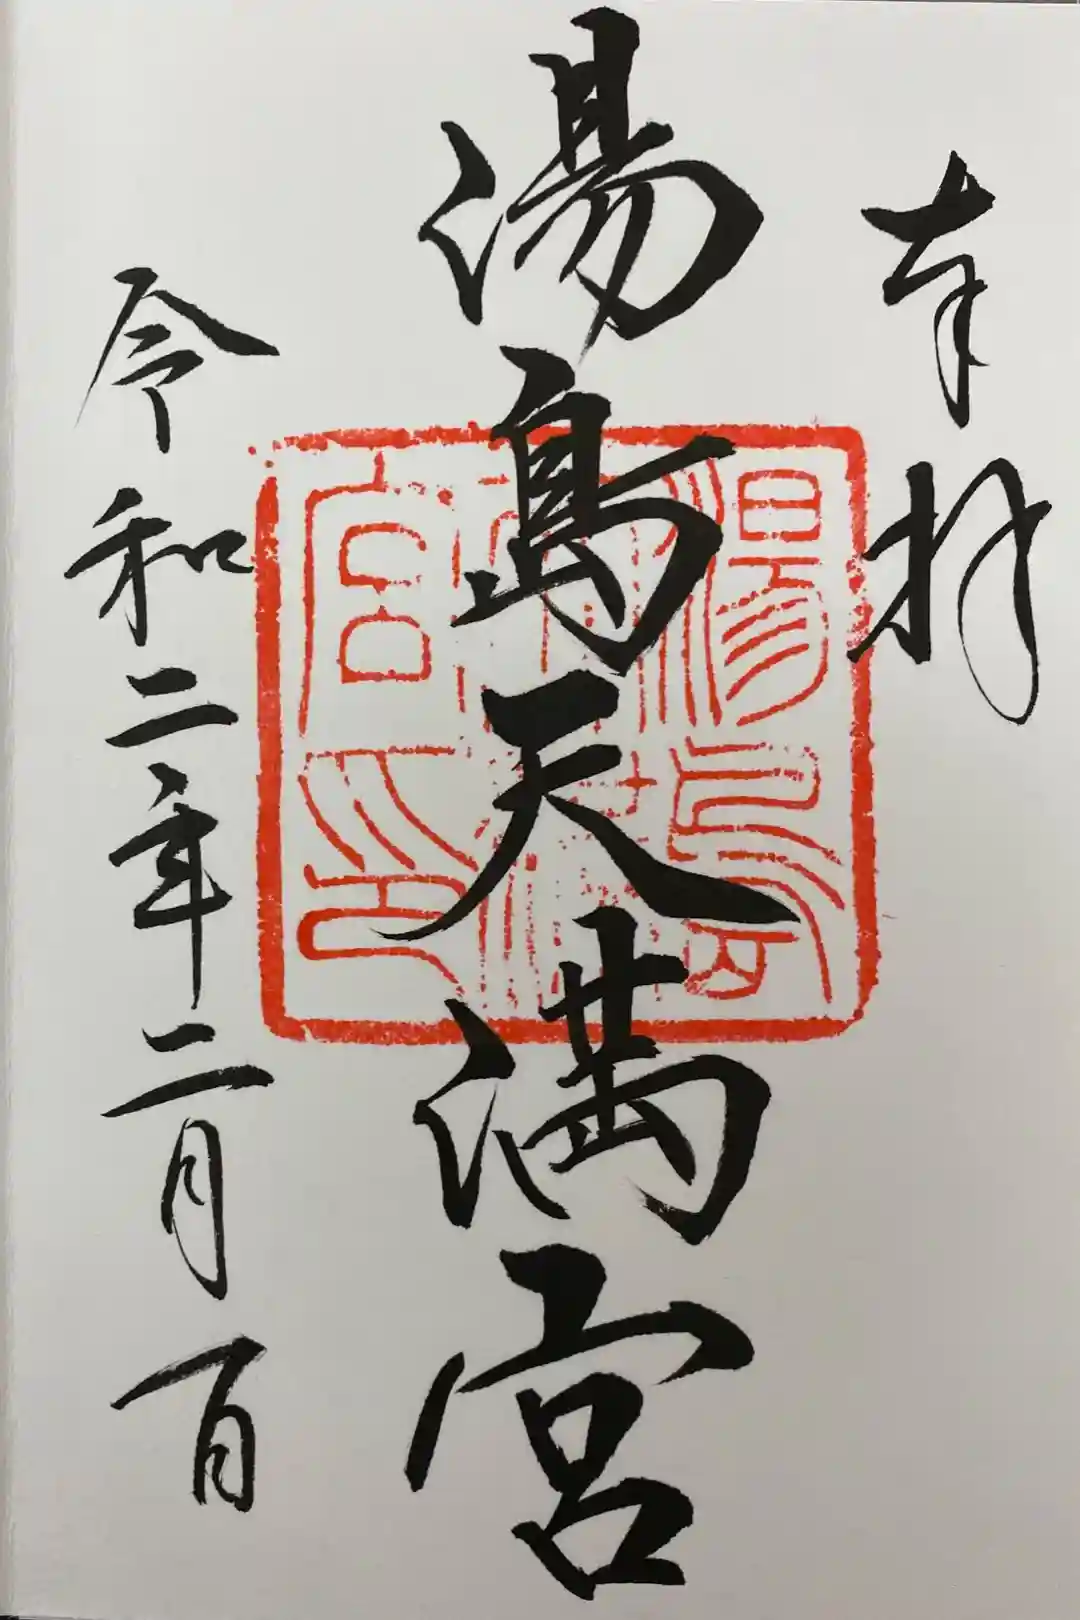 奉拝
湯島天満宮
令和二年二月一日
湯島神社宮印